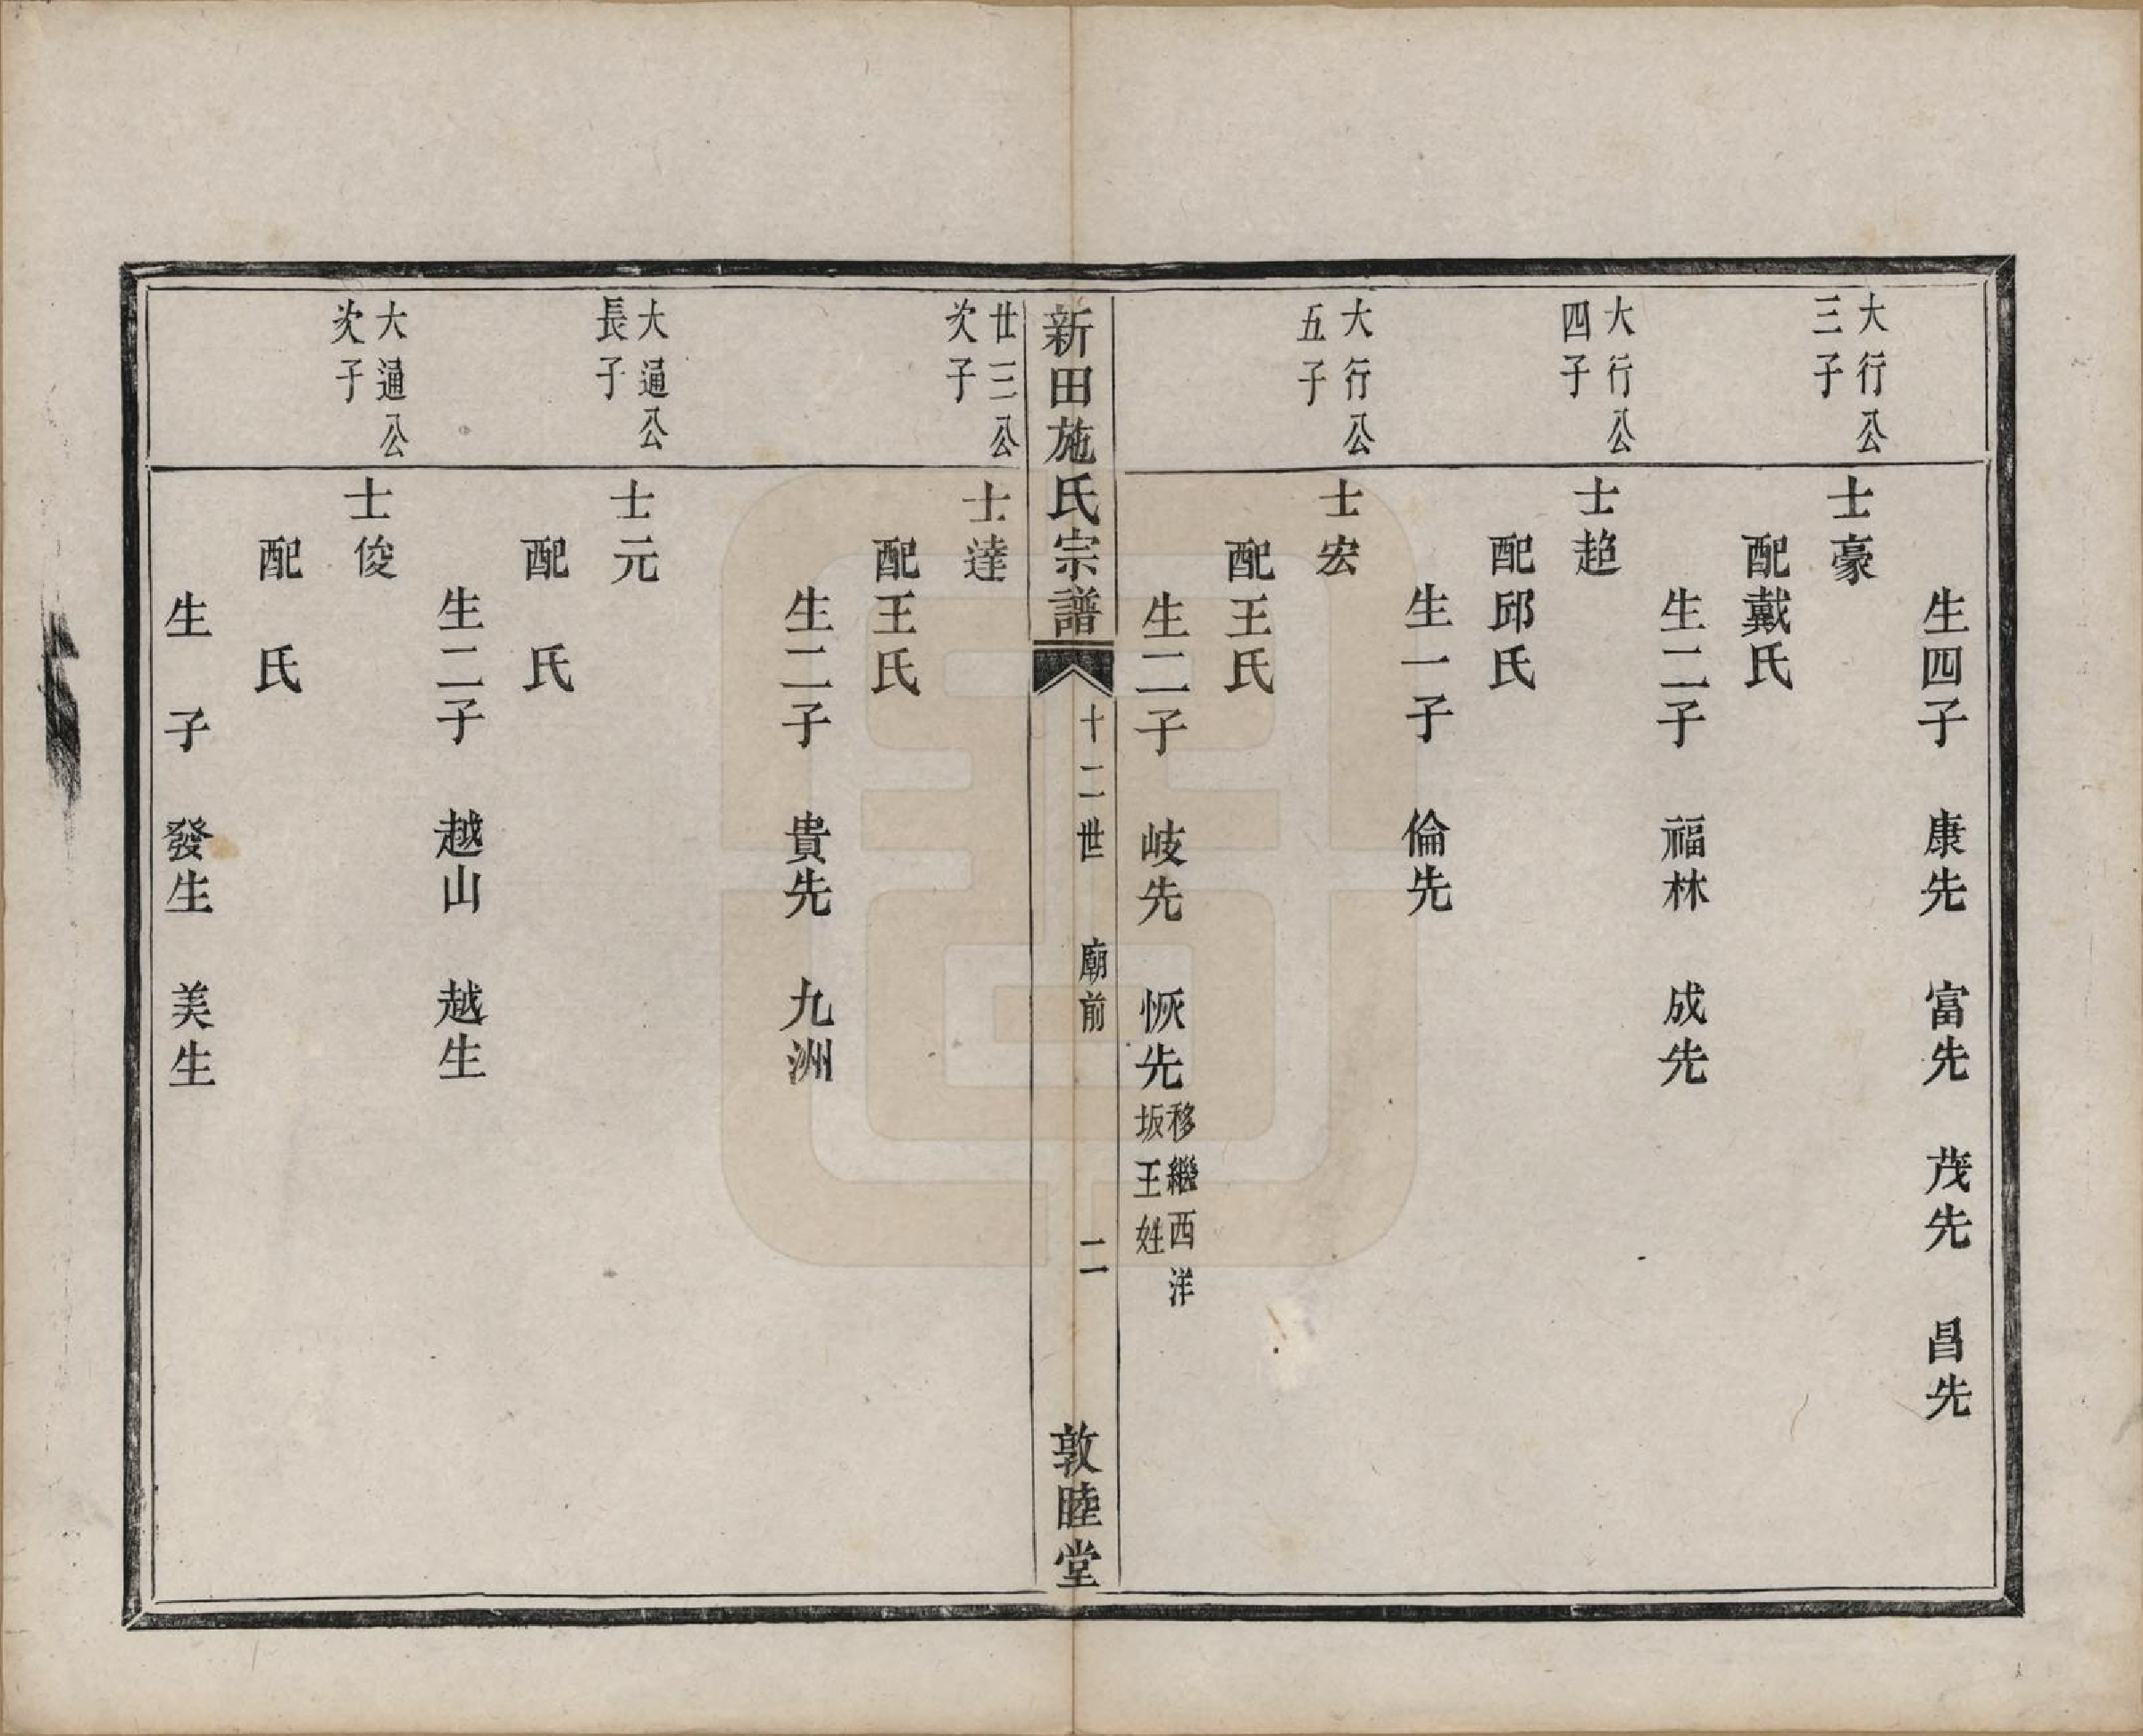 生四子　康先　富先　茂先　昌先
大行公
三子
士豪
配戴氏
生二子　福林　成先
大行公
四子
士趋
配邱氏
生一子　倫先
大行公
五子
士宏
配王氏
生二子　岐先　恢先
移繼西洋
坂王姓
新田施氏宗譜
十二世　廟前　二
敦睦堂
廿三公
次子
士達
配王氏
生二子　貴先　九洲
大通公
長子
士元
配　氏
生二子　越山　越生
大通公
次子
士俊
配　氏
生　子　發生　美生